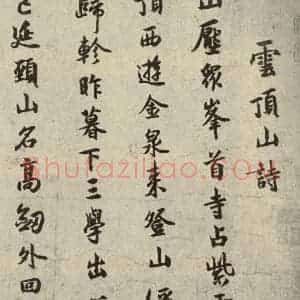 雲頂山詩
山壓眾峯首寺占紫
頂西遊金泉來登山
歸軫昨暮下三學出
延頸山名高劒外回
Shufaziliao.COM